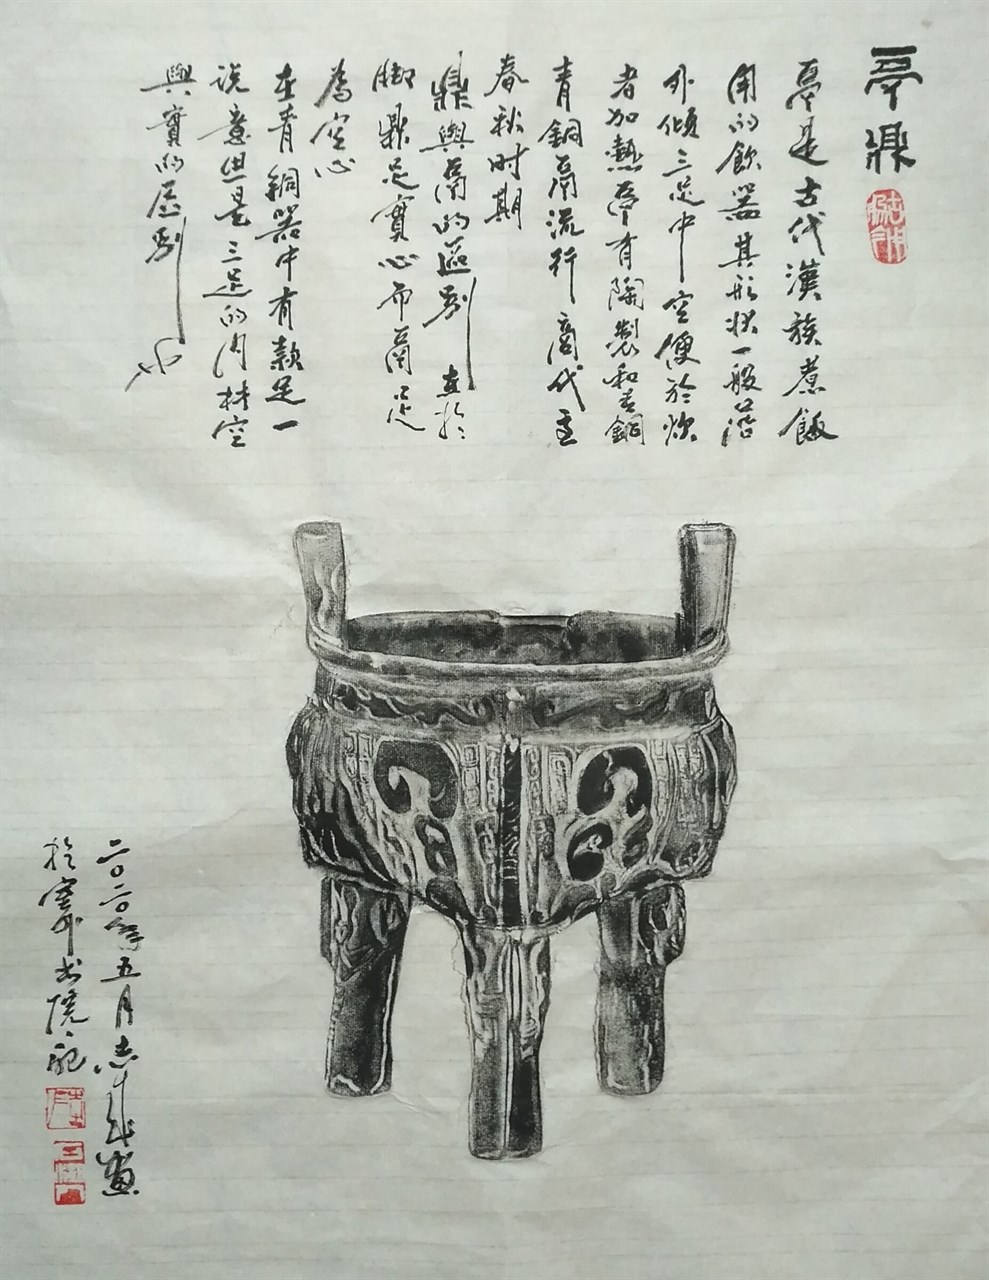 鬲鼎
鬲是古代漢族煮飯
用的飲器其形狀一般沿
外傾三足中空便於炊
者加熱鬲有陶製和青銅
青銅鬲流行商代至
春秋时期
鼎與鬲的區别在於
脚鼎足實心而鬲足
為空心
在青銅器中有款足一
说意思是三足的内林空
與實的區别也
二0二0年五月志成画
於寧州书院記